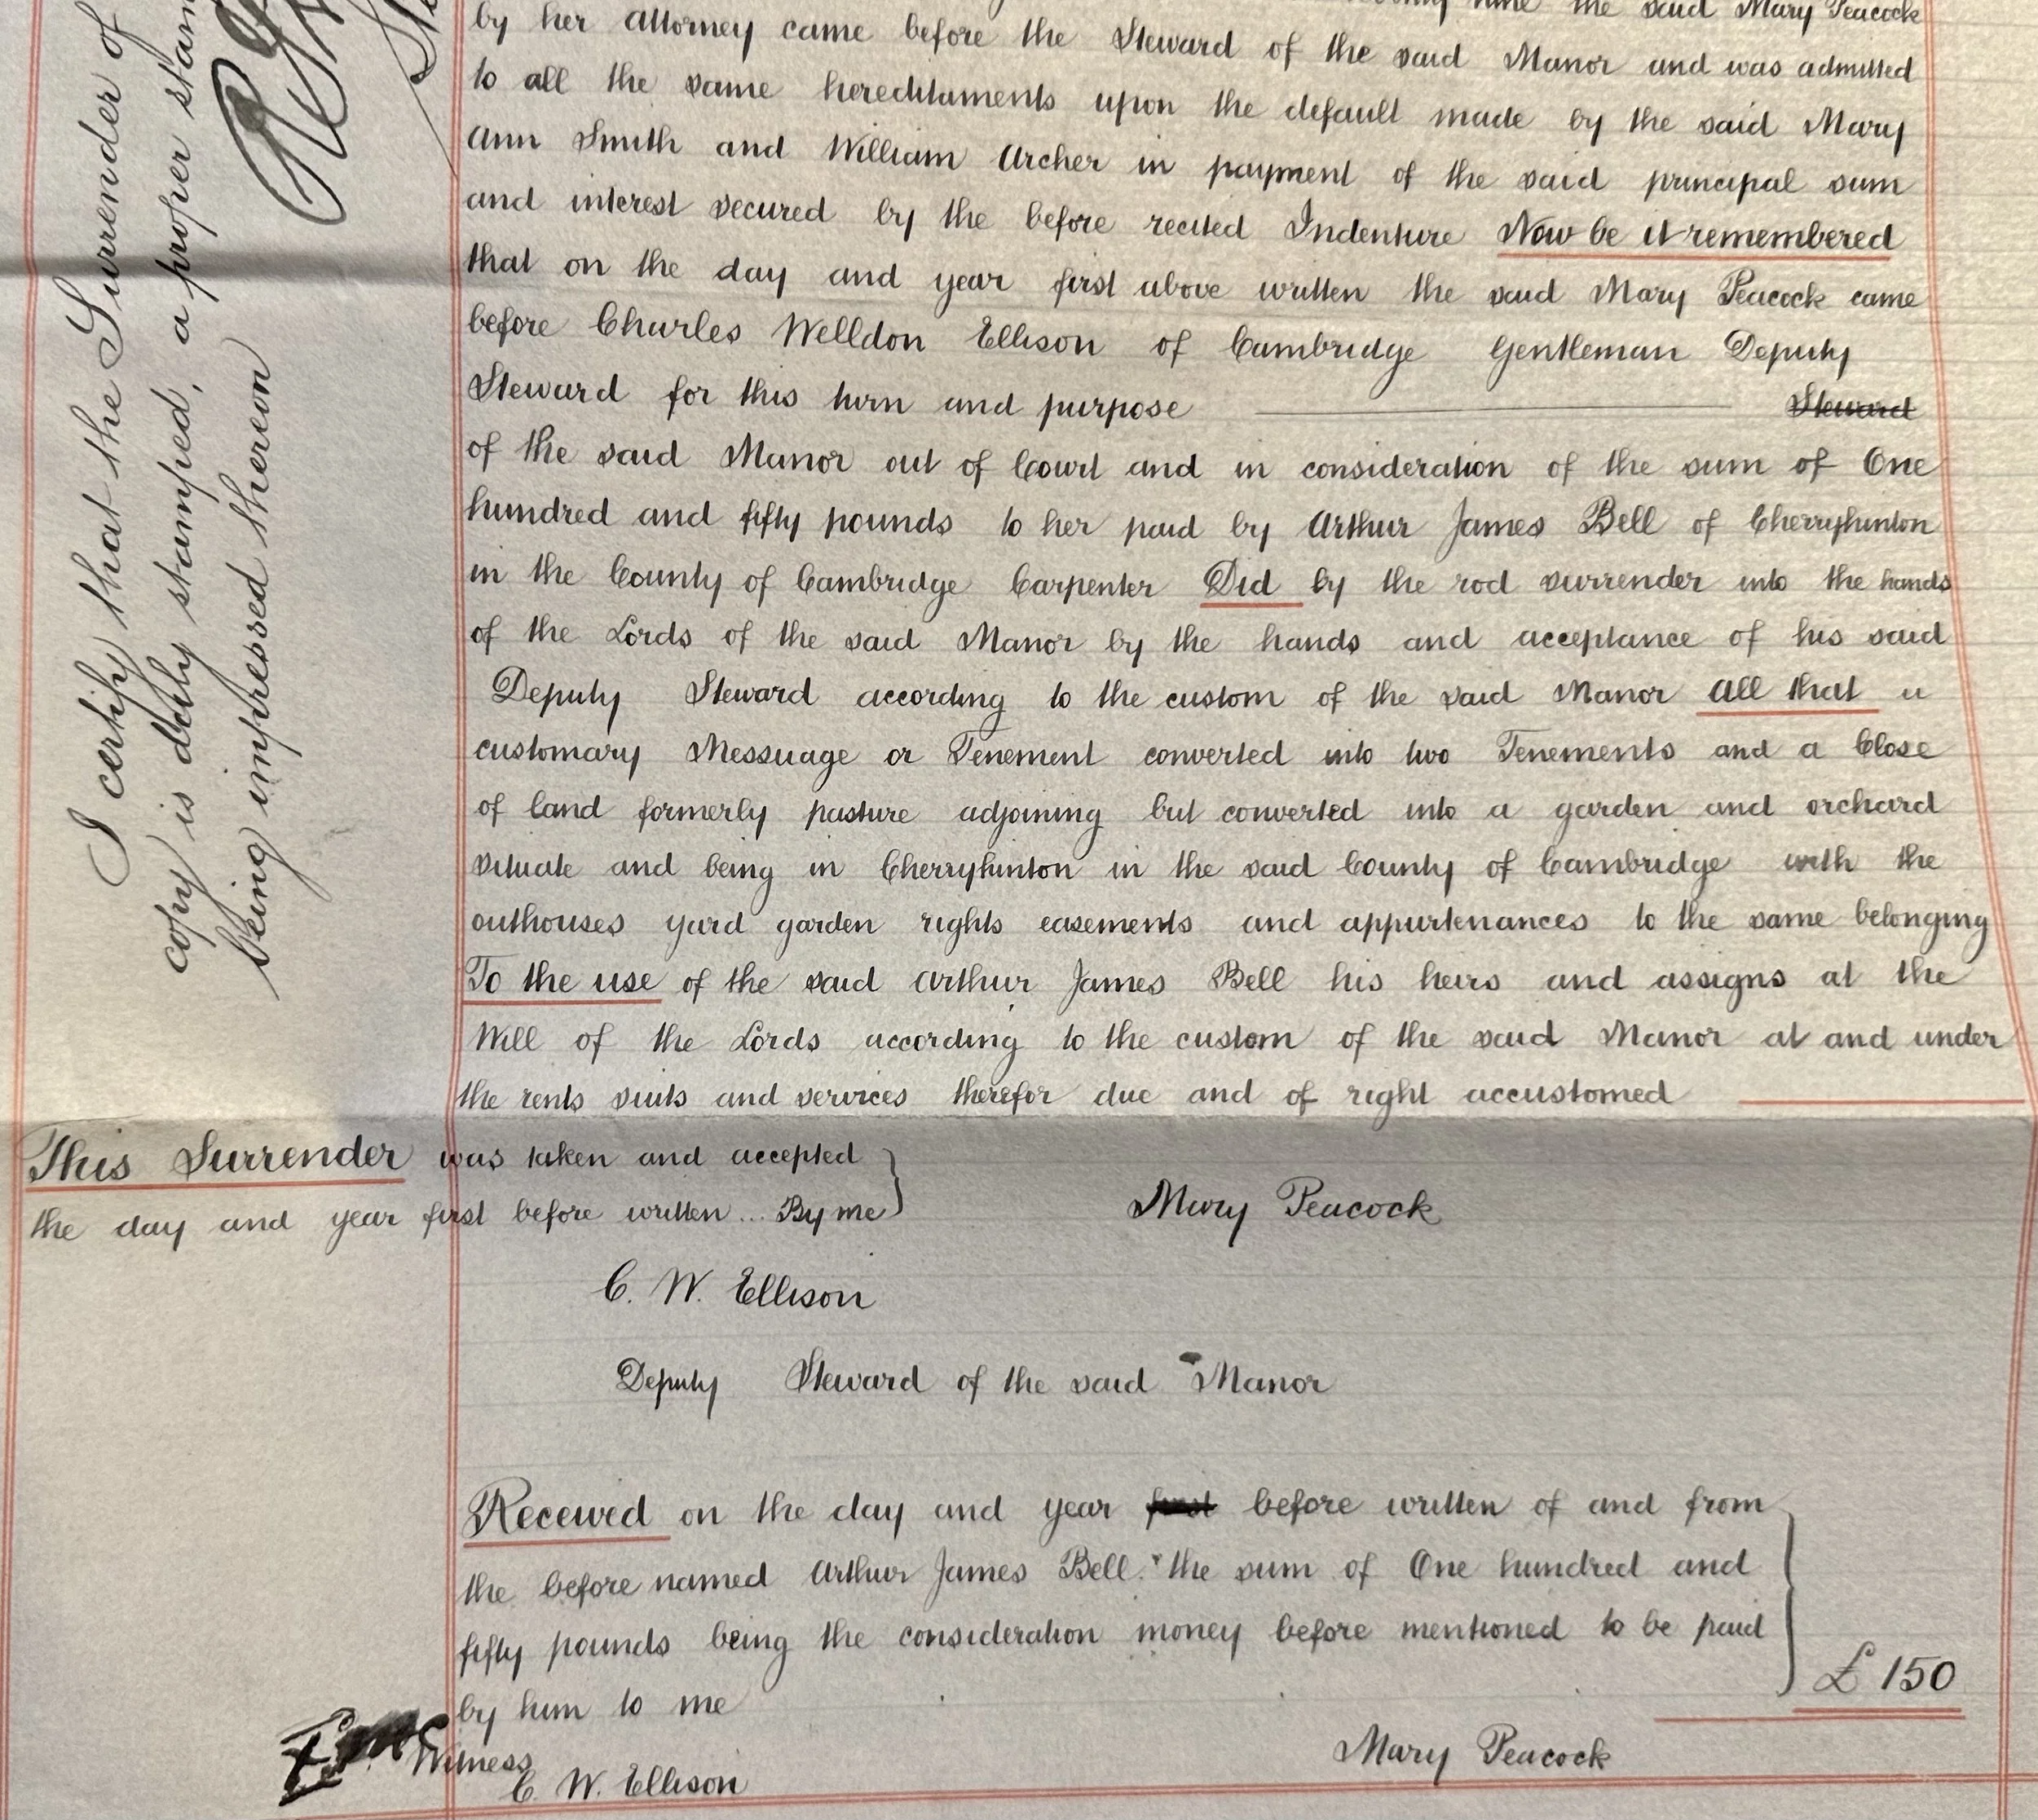 the said Mary Peacock
by her attorney came before the Steward of the said Manor and was admitted
to all the same hereditaments upon the default made by the said Mary
Ann Smith and William Archer in payment of the said principal sum
and interest secured by the before recited Indenture Now be it remembered
that on the day and year first above written the said Mary Peacock came
before Charles Welldon Ellison of Cambridge Gentleman Deputy
Steward for this turn and purpose Steward
of the said Manor out of Court and in consideration of the sum of One
hundred and fifty pounds to her paid by Arthur James Bell of Cherryhinton
in the County of Cambridge Carpenter Did by the rod surrender into the hands
of the Lords of the said Manor by the hands and acceptance of his said
Deputy Steward according to the custom of the said Manor All that a
customary Messuage or Tenement converted into two Tenements and a Close
of land formerly pasture adjoining but converted into a garden and orchard
situate and being in Cherryhinton in the said County of Cambridge with the
outhouses yard garden rights easements and appurtenances to the same belonging
To the use of the said Arthur James Bell his heirs and assigns at the
Will of the Lords according to the custom of the said Manor at and under
the rents suits and services therefor due and of right accustomed
This Surrender was taken and accepted
the day and year first before written... By me
Mary Peacock
C. W. Ellison
Deputy Steward of the said Manor
Received on the day and year first before written of and from
the before named Arthur James Bell the sum of One hundred and
fifty pounds being the consideration money before mentioned to be paid
by him to me
£150
Witness
C. W. Ellison
Mary Peacock
I certify that the Surrender of
copy is duly stamped, a proper stam
being impressed thereon